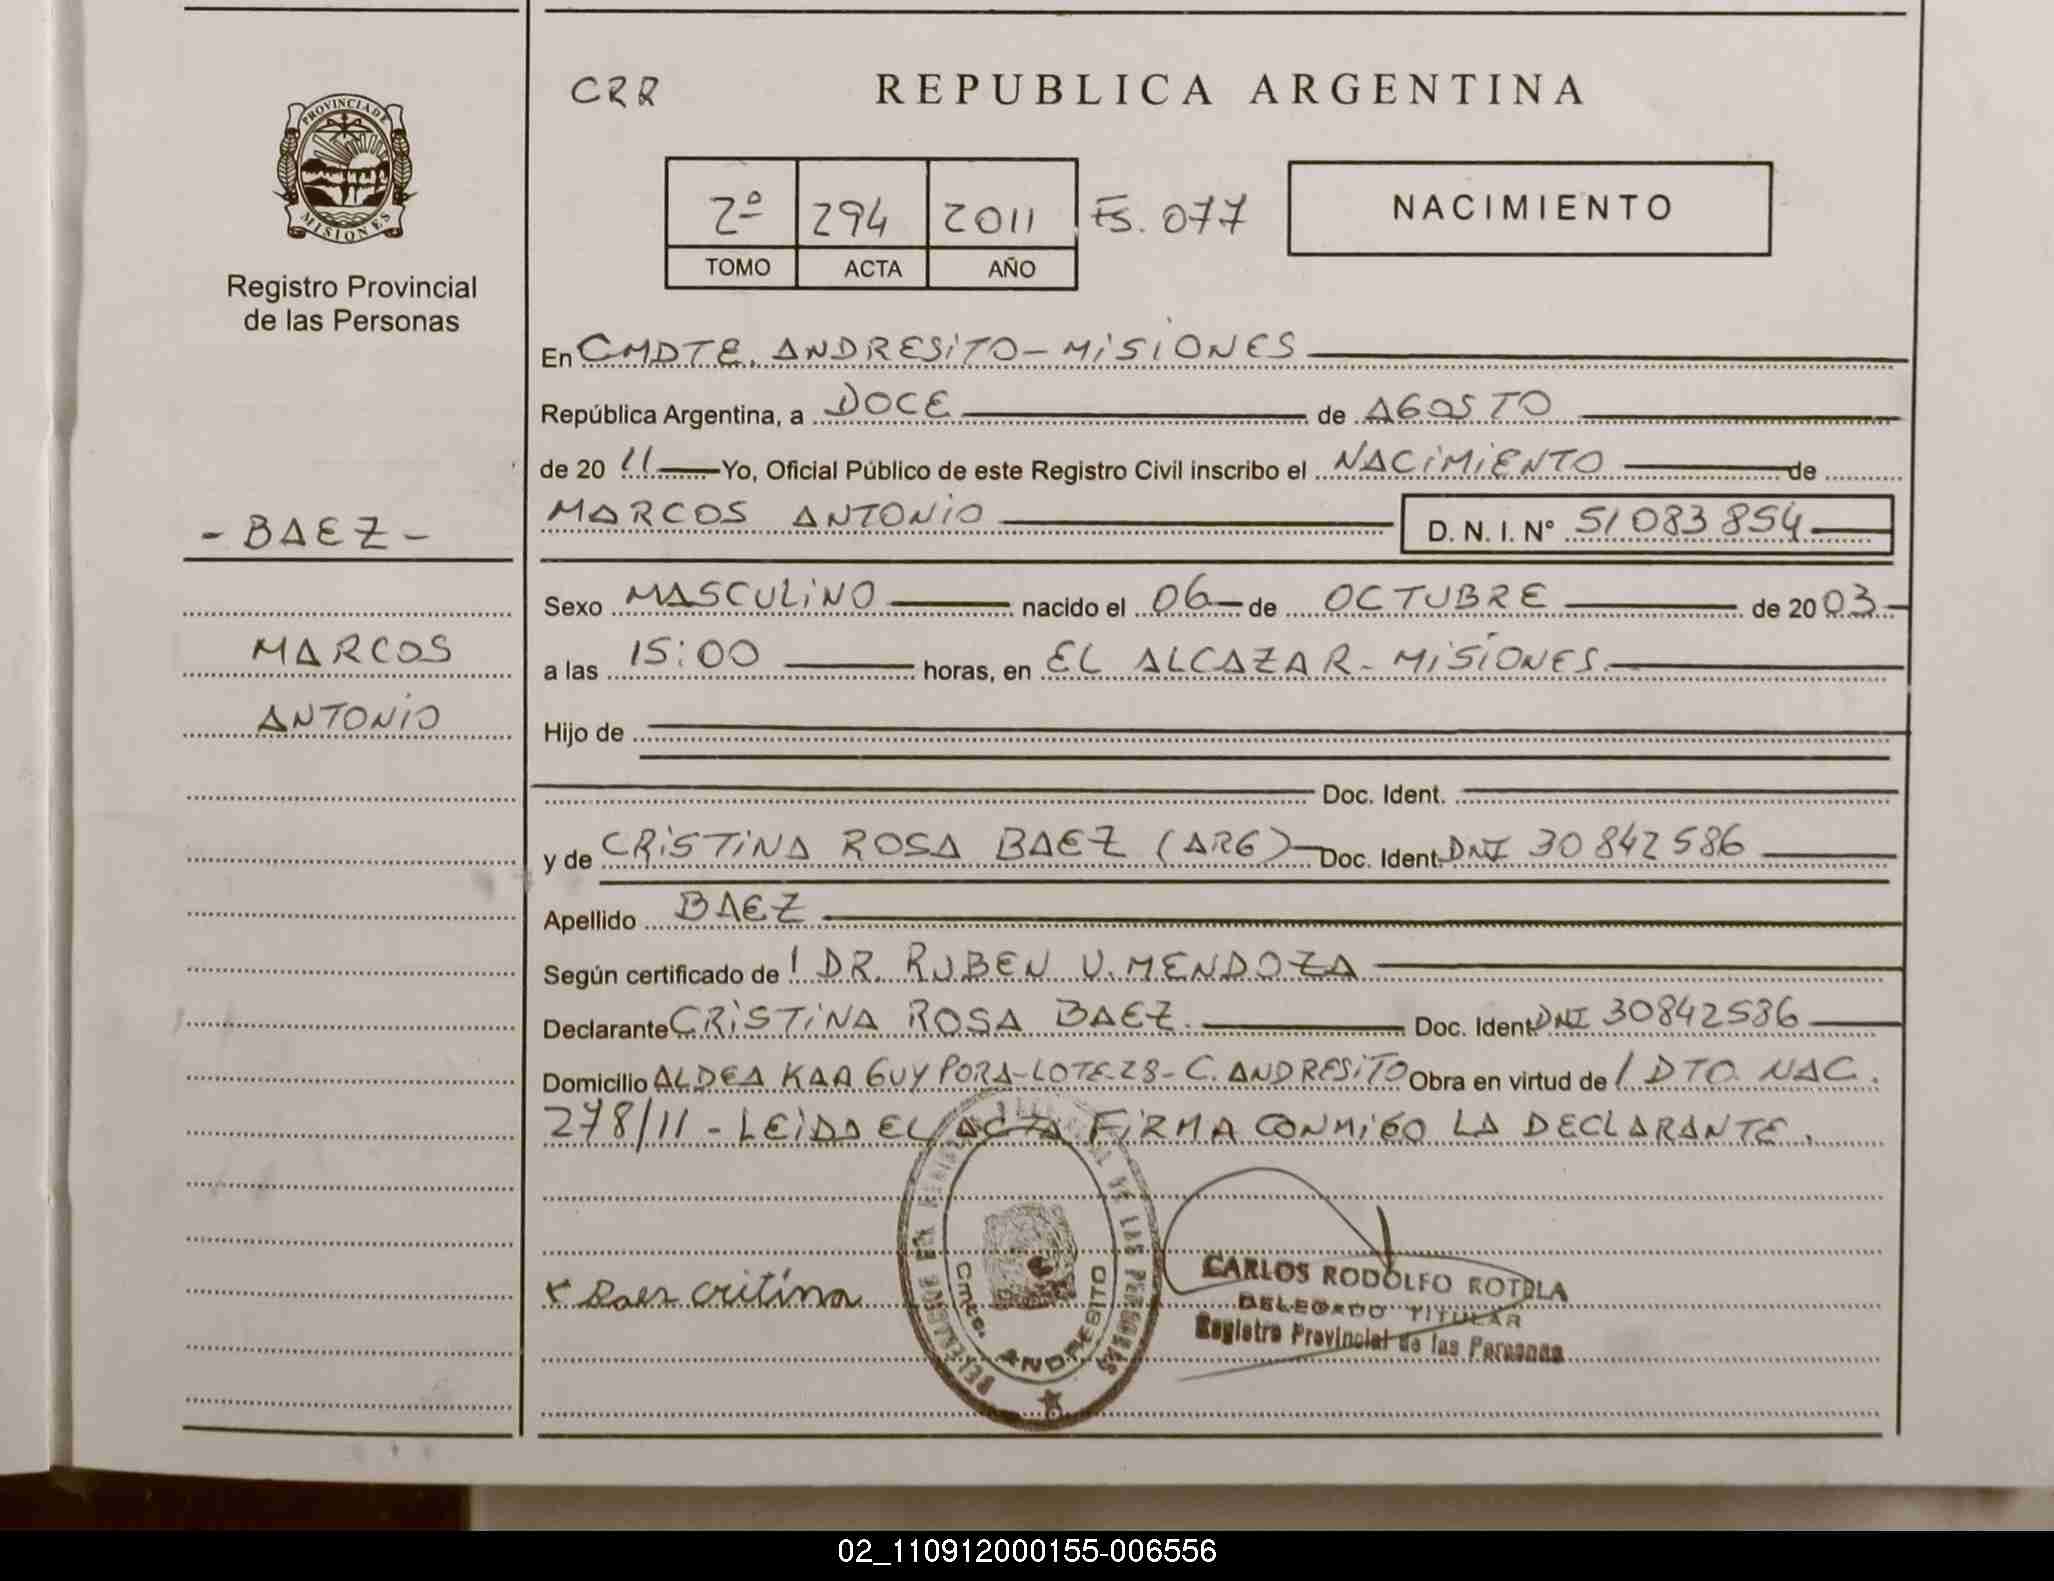 CRR
REPUBLICA ARGENTINA
PROVINCIA DE
MISIONES
2º 294 2011 Fs. 077
TOMO ACTA AÑO
NACIMIENTO
Registro Provincial
de las Personas
- BAEZ -
MARCOS
ANTONIO
En CMDTE. ANDRESITO - MISIONES
República Argentina, a DOCE de AGOSTO
de 20 11 Yo, Oficial Público de este Registro Civil inscribo el NACIMIENTO de
MARCOS ANTONIO D. N. I. Nº 51083854
Sexo MASCULINO nacido el 06 de OCTUBRE de 20 03
a las 15:00 horas, en EL ALCAZAR - MISIONES.
Hijo de
Doc. Ident.
y de CRISTINA ROSA BAEZ (ARG) Doc. Ident. DNI 30842586
Apellido BAEZ
Según certificado de / DR. RUBEN V. MENDOZA
Declarante CRISTINA ROSA BAEZ Doc. Ident. DNI 30842586
Domicilio ALDEA KAAGUY PORA - LOTE 28 - C. ANDRESITO Obra en virtud de / DTO. NAC.
278/11 - LEIDA EL ACTA FIRMA CONMIGO LA DECLARANTE.
x Baez critina
Cmte. ANDRESITO
DE LAS PERSONAS
CARLOS RODOLFO ROTELA
DELEGADO TITULAR
Registro Provincial de las Personas
02_110912000155-006556